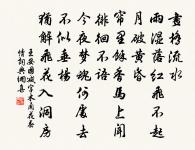 畫橋流水
雨濕落紅飛不起
月破黃昏
簾里餘香馬上聞
徘徊不語
今夜夢魂何處去
不似垂楊
獨解飛花入洞房
王安國減字木蘭花春
情詞典網